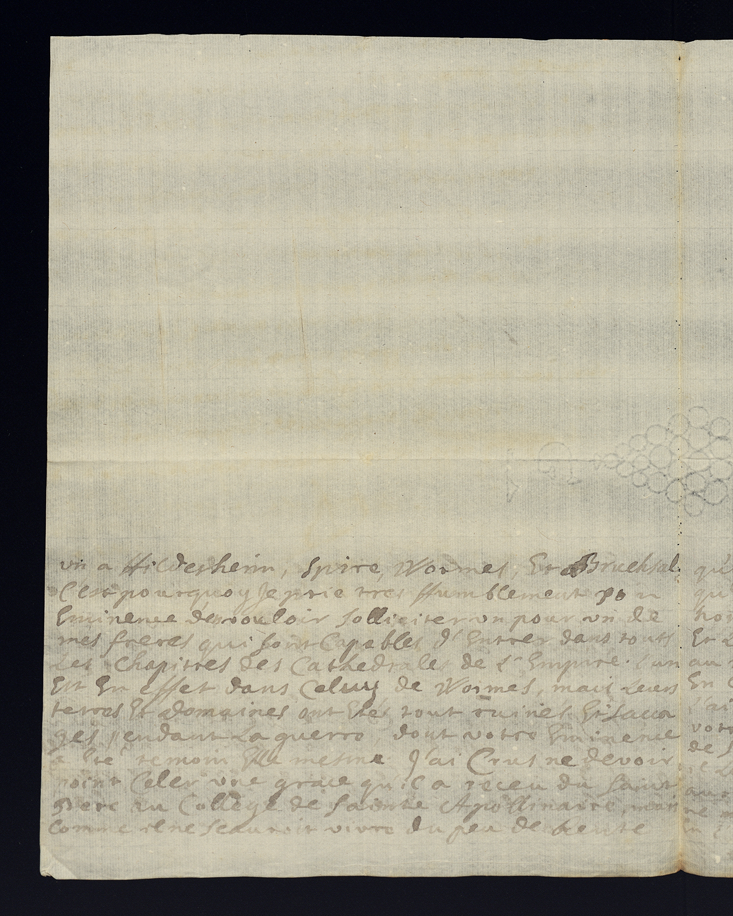 un a Hildesheim, Spire, Wormes, Et a Bruchsal, qu'
C'est pourquoy Je prie tres humblement son qu
Eminence de vouloir solliciter un pour un de
mes freres qui sont Capables d'Entrer dans touts
Les Chapitres des Cathedrales de L'Empire. l'un au
Est En effet dans Celuy de Wormes, mais Leurs En
terres Et domaines ont Etés tout ruinés Et Sacca
gés pendant La guerre dont votre Eminence vot
a Eté temoin Elle mesme. J'ai Crus ne devoir de
point Celer une grace qu'il a receu du Saint
Pere au College de Sainte Apollinaire, mais
comme il ne scauroit vivre du peu de